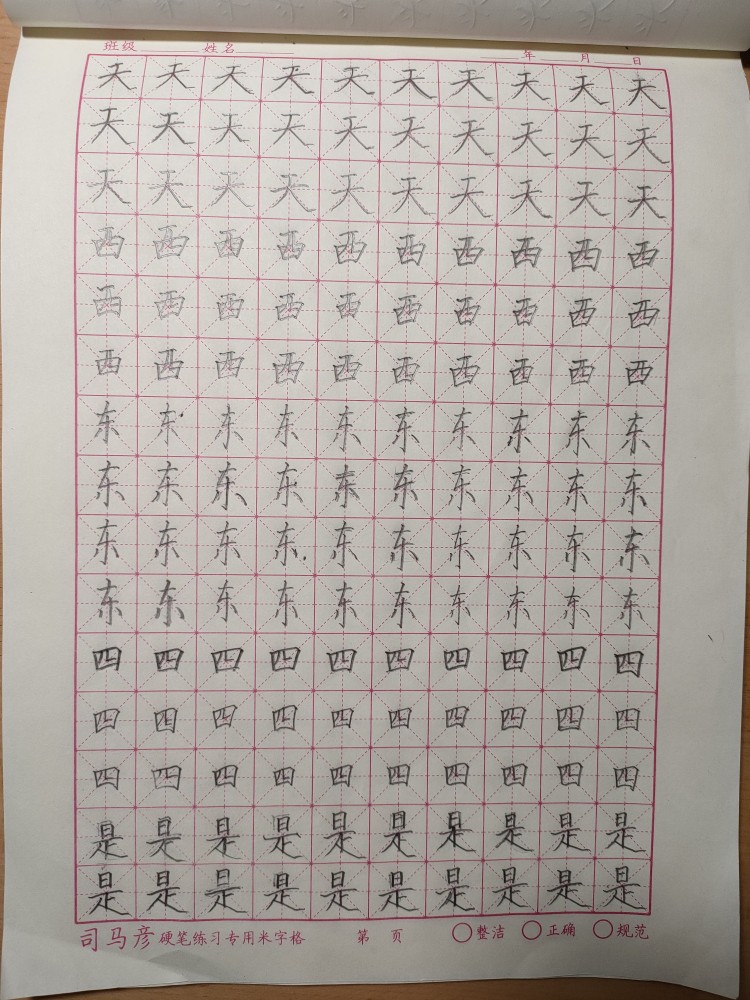 班级 姓名 年 月 日
天天天天天天天天天天
天天天天天天天天天天
天天天天天天天天天天
西西西西西西西西西西
西西西西西西西西西西
西西西西西西西西西西
东东东东东东东东东东
东东东东东东东东东东
东东东东东东东东东东
东东东东东东东东东东
四四四四四四四四四四
四四四四四四四四四四
四四四四四四四四四四
是是是是是是是是是是
是是是是是是是是是是
司马彦硬笔练习专用米字格 第 页 整洁 正确 规范